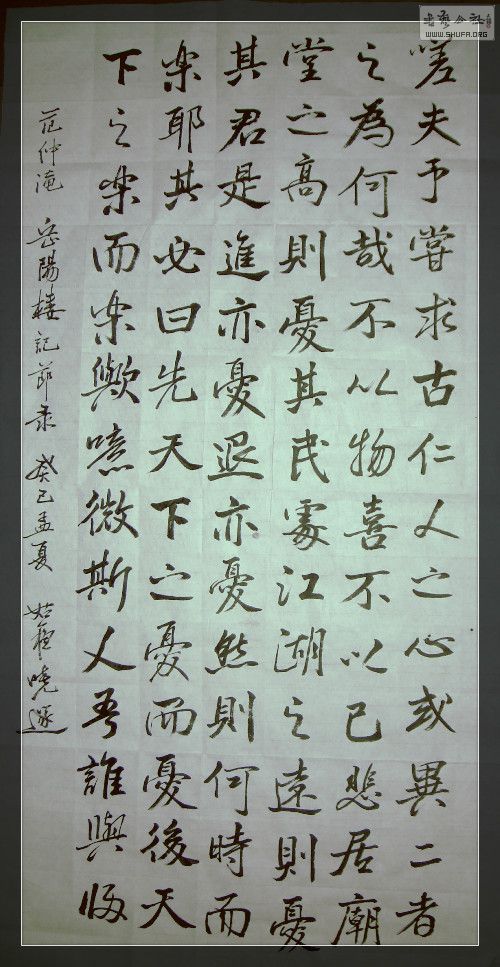 嗟夫予嘗求古仁人之心或異二者
之為何哉不以物喜不以己悲居廟
堂之高則憂其民處江湖之遠則憂
其君是進亦憂退亦憂然則何時而
楽耶其必曰先天下之憂而憂後天
下之楽而楽歟噫微斯人吾誰與歸
范仲淹 岳陽楼記節录 癸巳孟夏
书艺公社
WWW.SHUFA.ORG